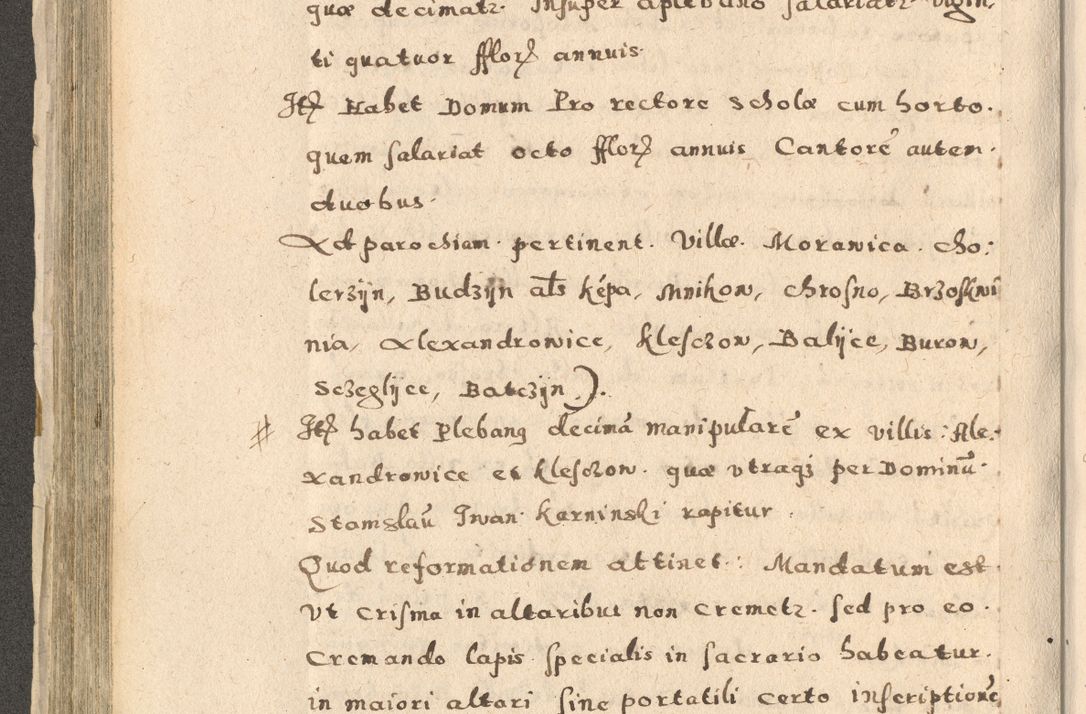 quæ decimatr. Insuper a plebano salariatr Vigin,
ti quatuor fflorʒ annuis.
Itʒ Habet Domum Pro rectore Scholæ cum horto.
quem salariat octo fflorʒ annuis Cantorē autem.
duobus.
Ad parochiam. pertinent. Villæ. Morawica. Cho:
lerzÿn, Budzÿn als Képa, Mnikow, Chrosno, Brzoskwi
nia, Alexandrowice, Klesczow, Balÿce, Burow,
Sczeglÿce, Batczÿn).
# Itʒ habet Plebanꝯ decimā manipularē ex villis. Ale:
xandrowice et Klesczow. quæ vtraqʒ per Dominū.
Stanislaū Iwan Karninski rapitur.
Quod reformationem attinet: Mandatum est.
Vt Crisma in altaribus non Cremetr. sed pro eo.
Cremando lapis specialis in sacrario habeatur.
in maiori altari sine portatili certo inscriptionē